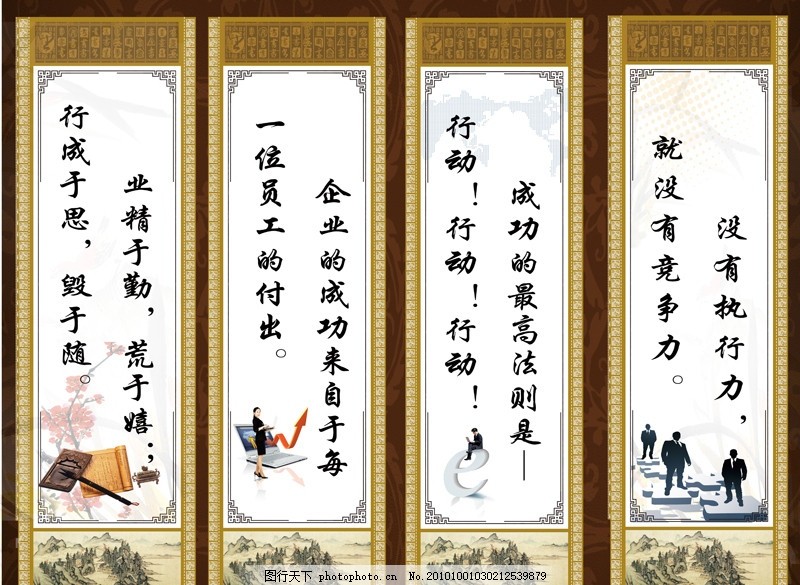 没有执行力，
就没有竞争力。
成功的最高法则是—
行动！行动！行动！
企业的成功来自于每
一位员工的付出。
业精于勤，荒于嬉；
行成于思，毁于随。
e
图行天下 PHOTOPHOTO.CN
图行天下 www.photophoto.cn No.20101001030212539879